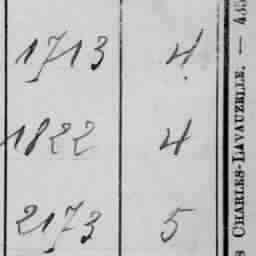 1713 4
1822 4
2173 5
CHARLES-LAVAUZELLE. —